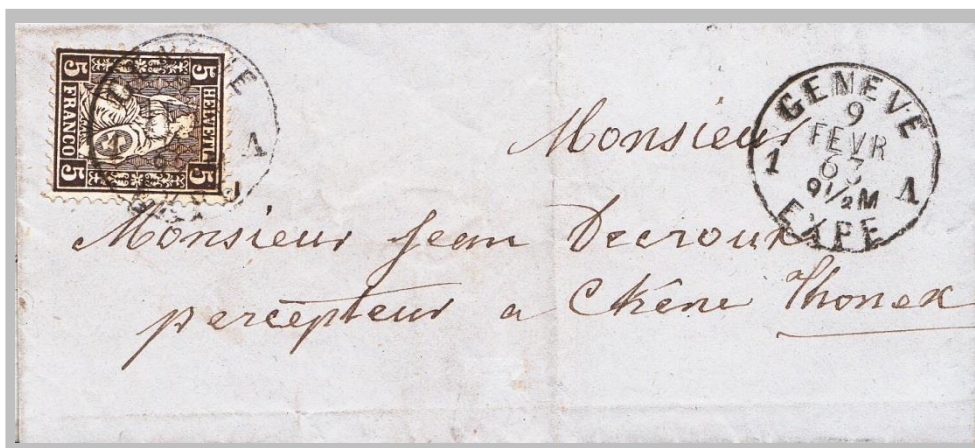 5 HELVETIA 5
5 FRANCO 5
GENEVE
9
FEVR
63
1 9½M 1
EXPE
Monsieur
Monsieur Jean Decroux
percepteur a Chêne Thonex